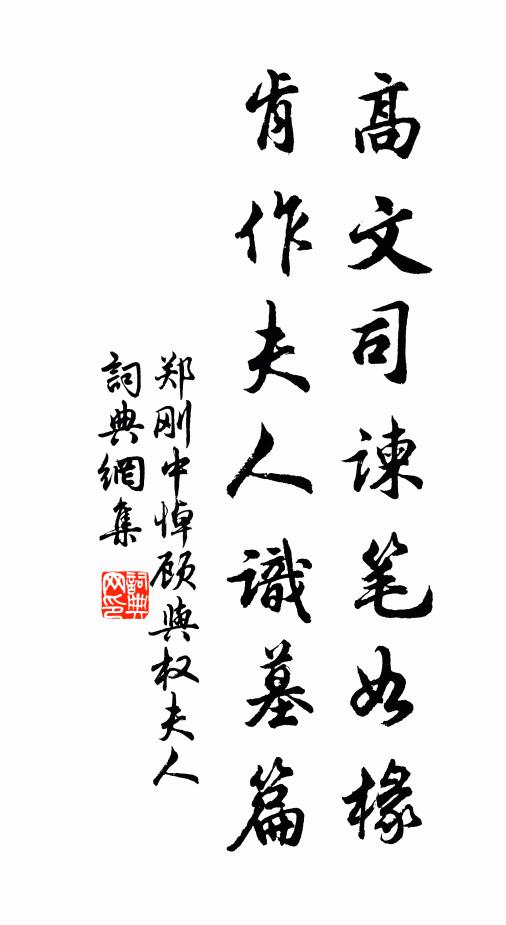 高文司谏笔如椽
肯作夫人識墓篇
郑刚中悼顾與权夫人
詞典網集
詞典网印